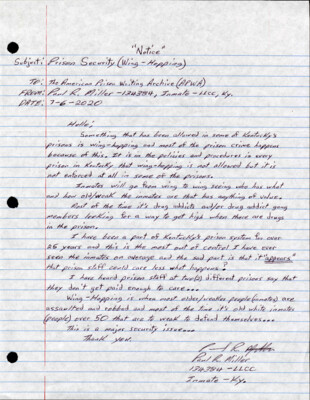 "Notice"
Subject: Prison Security (Wing-Hopping)
To: The American Prison Writing Archive (APWA)
FROM: Paul R. Miller-174394, Inmate-LLCC, Ky.
DATE: 7-6-2020
Hello;
Something that has been allowed in some of Kentucky's
prisons is wing-hopping and most of the prison crime happens
because of this. It is in the policies and procedures in every
prison in Kentucky that wing-hopping is not allowed but it is
not enforced at all in some of the prisons.
Inmates will go from wing to wing seeing who has what
and how old/weak the inmates are that has anything of value.
Most of the time it's drug addicts and/or drug addict gang
members looking for a way to get high when there are drugs
in the prison.
I have been a part of Kentucky's prison system for over
25 years and this is the most out of control I have ever
seen the inmates on average and the sad part is that it "appears"
that prison staff could care less what happens.
I have heard prison staff at two(2) different prisons say that
they don't get paid enough to care...
Wing-Hopping is when most older/weaker people(inmates) are
assaulted and robbed and most of the time it's old white inmates
(people) over 50 that are to weak to defend themselves...
This is a major security issue...
Thank you.
Paul R. Miller
Paul R. Miller
174394-LLCC
Inmate-Ky.